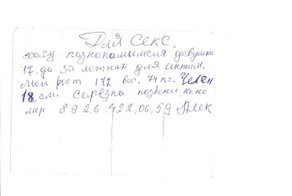 Для секс.
хочу познокамыися девушки
17. до 30 летнах для интим.
Мой рост 172 вес. 74 кг. Челен
18, см. сирезна позвони, хоно
мар 8926.422,06,59 Алек